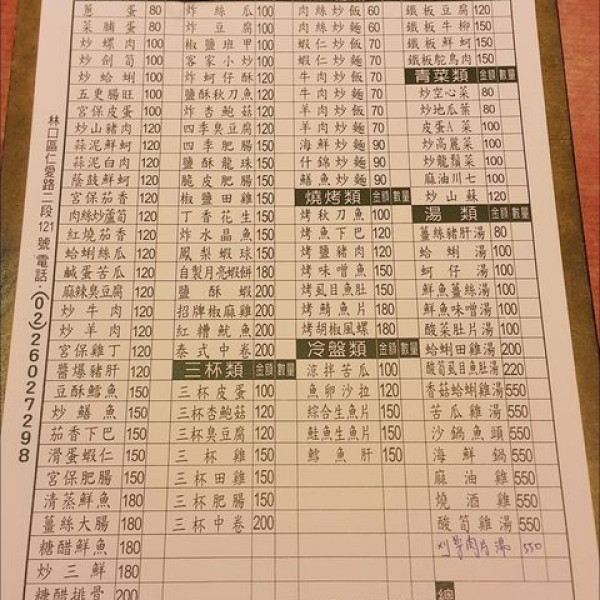 林口區仁愛路二段121號 電話:(02)26027298
蔥蛋 80
菜脯蛋 80
炒螺肉 100
炒劍筍 100
炒蛤蜊 100
五更腸旺 100
宮保皮蛋 100
炒山豬肉 120
蒜泥鮮蚵 120
蒜泥白肉 120
蔭鼓鮮蚵 120
宮保茄香 120
肉絲炒蘆筍 120
紅燒茄香 120
蛤蜊絲瓜 120
鹹蛋苦瓜 120
麻辣臭豆腐 120
炒牛肉 120
炒羊肉 120
宮保雞丁 120
醬爆豬肝 120
豆酥鱈魚 150
炒鱔魚 150
茄香下巴 150
滑蛋蝦仁 150
宮保肥腸 150
清蒸鮮魚 180
薑絲大腸 180
糖醋鮮魚 180
炒三鮮 180
糖醋排骨 200
炸絲瓜 100
炸豆腐 100
椒鹽班甲 100
客家小炒 100
炸蚵仔酥 120
鹽酥秋刀魚 120
炸杏鮑菇 120
四季臭豆腐 120
四季肥腸 150
鹽酥龍珠 150
脆皮肥腸 150
椒鹽田雞 150
丁香花生 150
炸水晶魚 150
鳳梨蝦球 150
自製月亮蝦餅 180
鹽酥蝦 200
招牌椒麻雞 200
紅糟魷魚 200
泰式中卷 200
三杯類 金額 數量
三杯皮蛋 100
三杯杏鮑菇 120
三杯臭豆腐 120
三杯雞 150
三杯田雞 150
三杯肥腸 150
三杯中卷 200
肉絲炒飯 60
肉絲炒麵 60
蝦仁炒飯 70
蝦仁炒麵 70
牛肉炒飯 70
牛肉炒麵 70
羊肉炒飯 70
羊肉炒麵 70
海鮮炒麵 90
什錦炒麵 90
鱔魚炒麵 90
燒烤類 金額 數量
烤秋刀魚 100
烤魚下巴 120
烤鹽豬肉 120
烤味噌魚 150
烤虱目魚肚 150
烤鯖魚片 180
烤胡椒風螺 180
冷盤類 金額 數量
涼拌苦瓜 100
魚卵沙拉 120
綜合生魚片 150
鮭魚生魚片 150
鱈魚肝 150
鐵板豆腐 120
鐵板牛柳 150
鐵板鮮蚵 150
鐵板鴕鳥肉 150
青菜類 金額 數量
炒空心菜 80
炒地瓜葉 80
皮蛋A菜 100
炒高麗菜 100
炒龍鬚菜 100
麻油川七 100
炒山蘇 120
湯類 金額 數量
薑絲豬肝湯 80
蛤蜊湯 100
蚵仔湯 100
鮮魚薑絲湯 100
鮮魚味噌湯 100
酸菜肚片湯 100
蛤蜊田雞湯 200
酸筍虱目魚肚湯 220
香菇蛤蜊雞湯 550
苦瓜雞湯 550
沙鍋魚頭 550
海鮮鍋 550
麻油雞 550
燒酒雞 550
酸筍雞湯 550
肉片湯 550
總